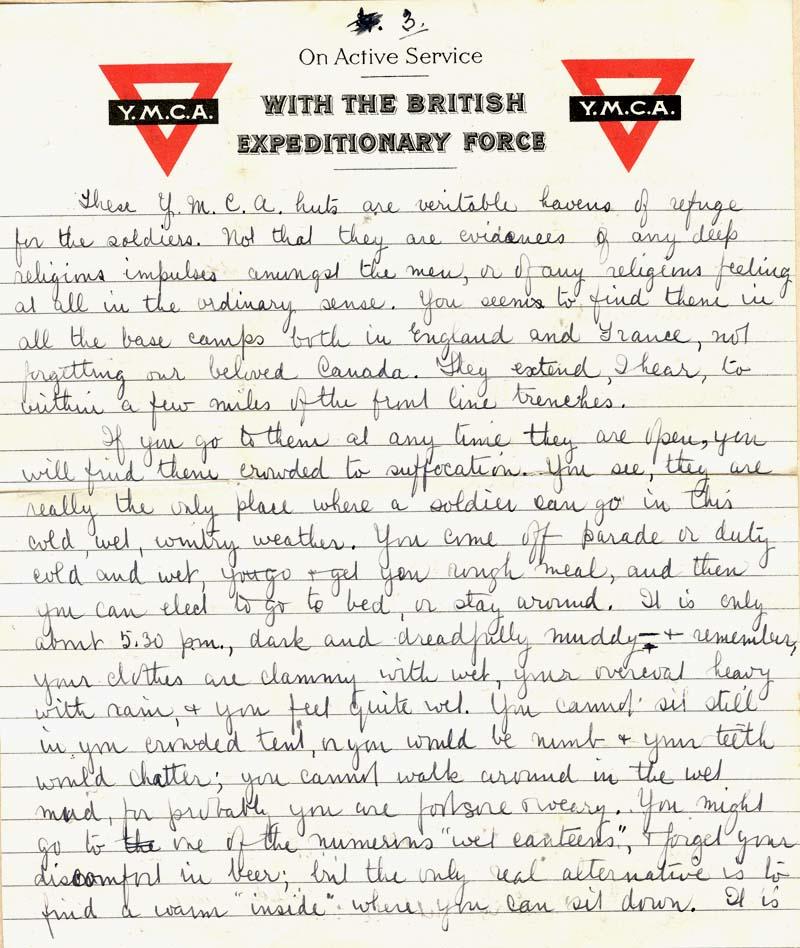 3.
On Active Service
WITH THE BRITISH
EXPEDITIONARY FORCE
Y.M.C.A.
Y.M.C.A.
These Y.M.C.A. huts are veritable havens of refuge
for the soldiers. Not that they are evidences of any deep
religious impulses amongst the men, or of any religious feeling
at all in the ordinary sense. You seems to find them in
all the base camps both in England and France, not
forgetting our beloved Canada. They extend, I hear, to
within a few miles of the front line trenches.
If you go to them at any time they are open, you
will find them crowded to suffocation. You see, they are
really the only place where a soldier can go in this
cold, wet, wintry weather. You come off parade or duty
cold and wet, you go + get you rough meal, and then
you can elect to go to bed, or stay around. It is only
about 5.30 pm., dark and dreadfully muddy - + remember,
your clothes are clammy with wet, your overcoat heavy
with rain, + you feel quite wet. You cannot sit still
in you crowded tent, or you would be numb + your teeth
would chatter; you cannot walk around in the wet
mud, for probably you are footsore o weary. You might
go to the one of the numerous "wet canteens", + forget your
discomfort in beer; but the only real alternative is to
find a warm "inside" where you can sit down. It is